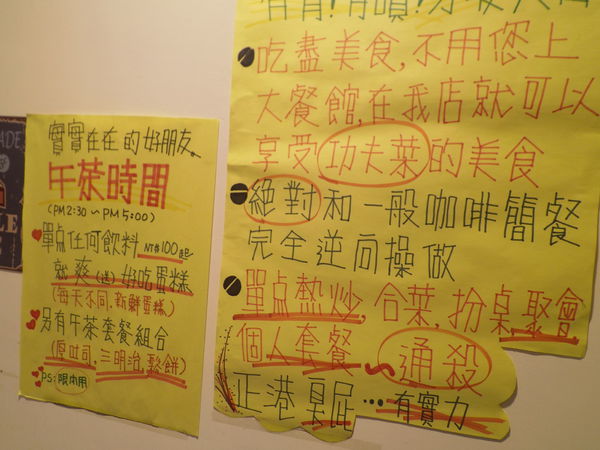 實實在在的好朋友
午茶時間
(PM 2:30 ~ PM 5:00)
單点任何飲料 NT$100起
就爽(送)好吃蛋糕
(每天不同,新鮮蛋糕)
另有午茶套餐組合
(厚吐司,三明治,鬆餅)
PS:限內用
吃盡美食,不用您上
大餐館,在我店就可以
享受功夫菜的美食
絕對和一般咖啡簡餐
完全逆向操做
單点熱炒,合菜,扮桌聚會
個人套餐~通殺
正港臭屁…有實力